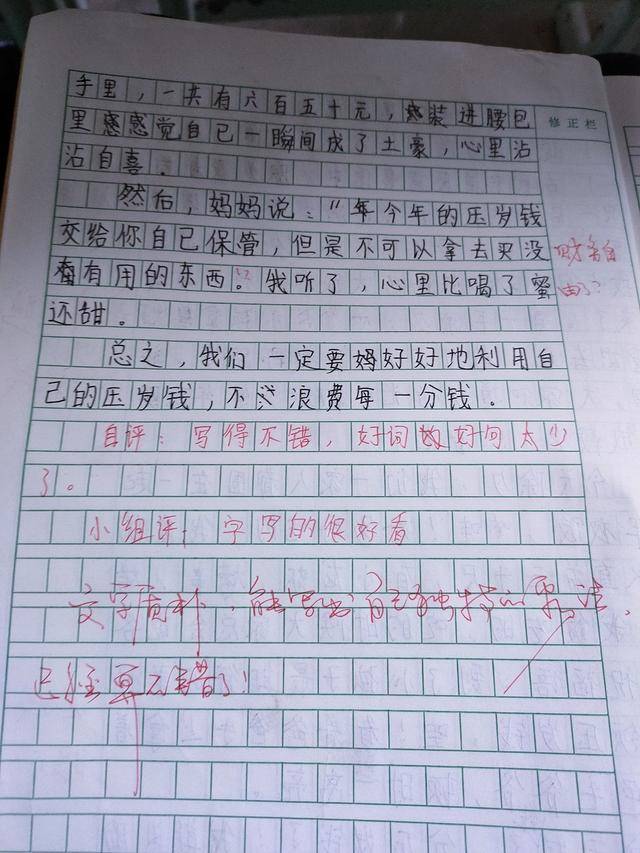 手里，一共有六百五十元，装进腰包
修正栏
里感觉自己一瞬间成了土豪，心里沾
沾自喜．
然后，妈妈说：“今年的压岁钱
交给你自己保管，但是不可以拿去买没
财务自
有用的东西。”我听了，心里比喝了蜜
由了？
还甜。
总之，我们一定要好好地利用自
己的压岁钱，不浪费每一分钱．
自评：写得不错，好词好句太少
了。
小组评：字写的很好看
文字质朴，能写出自己独特的
已经不错了！